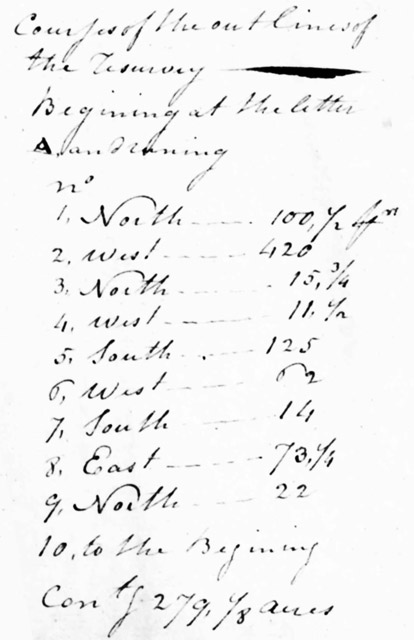 Courses of the out lines of
the Resurvey
Begining at the letter
A. and runing
no
1, North 100, 1/2
2, West 420
3, North 15, 3/4
4, West 11, 1/2
5, South 125
6, West 62
7, South 14
8, East 73, 1/4
9, North 22
10, to the Begining
Con tg 279, 1/8 acres